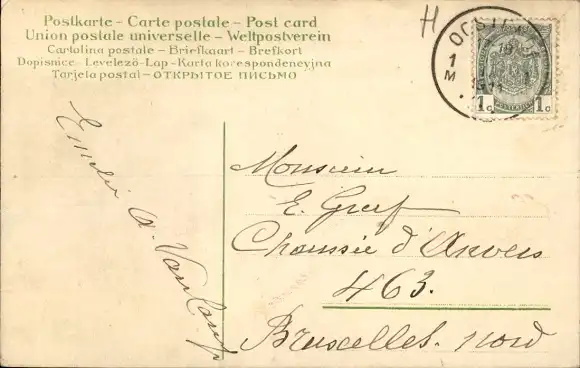 Postkarte - Carte postale - Post card
Union postale universelle - Weltpostverein
Cartolina postale - Briefkaart - Brefkort
Dopisnice - Levelező-Lap - Karta korespondencyjna
Tarjeta postal - ОТКРЫТОЕ ПИСЬМО
H
1
M
1c 1c
Emelie A. Van Camp
Monsieur
E. Greif
Chaussée d'Anvers
463.
Bruxelles. nord